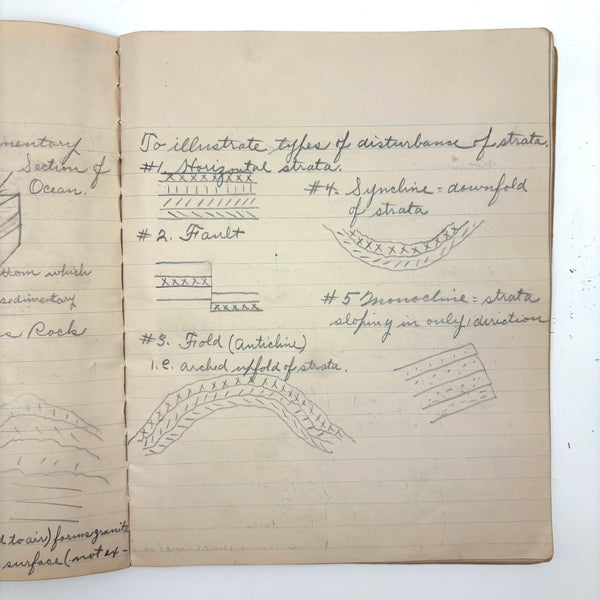 mentary
Section of
Ocean.
ttom which
sedimentary
s Rock
d to air) forms granite
surface (not ex-
To illustrate types of disturbance of strata.
#1. Horizontal strata.
#2. Fault
#3. Fold (Anticline)
i.e. arched upfold of strata.
#4. Syncline = downfold
of strata
#5 Monocline = strata
sloping in only 1 direction